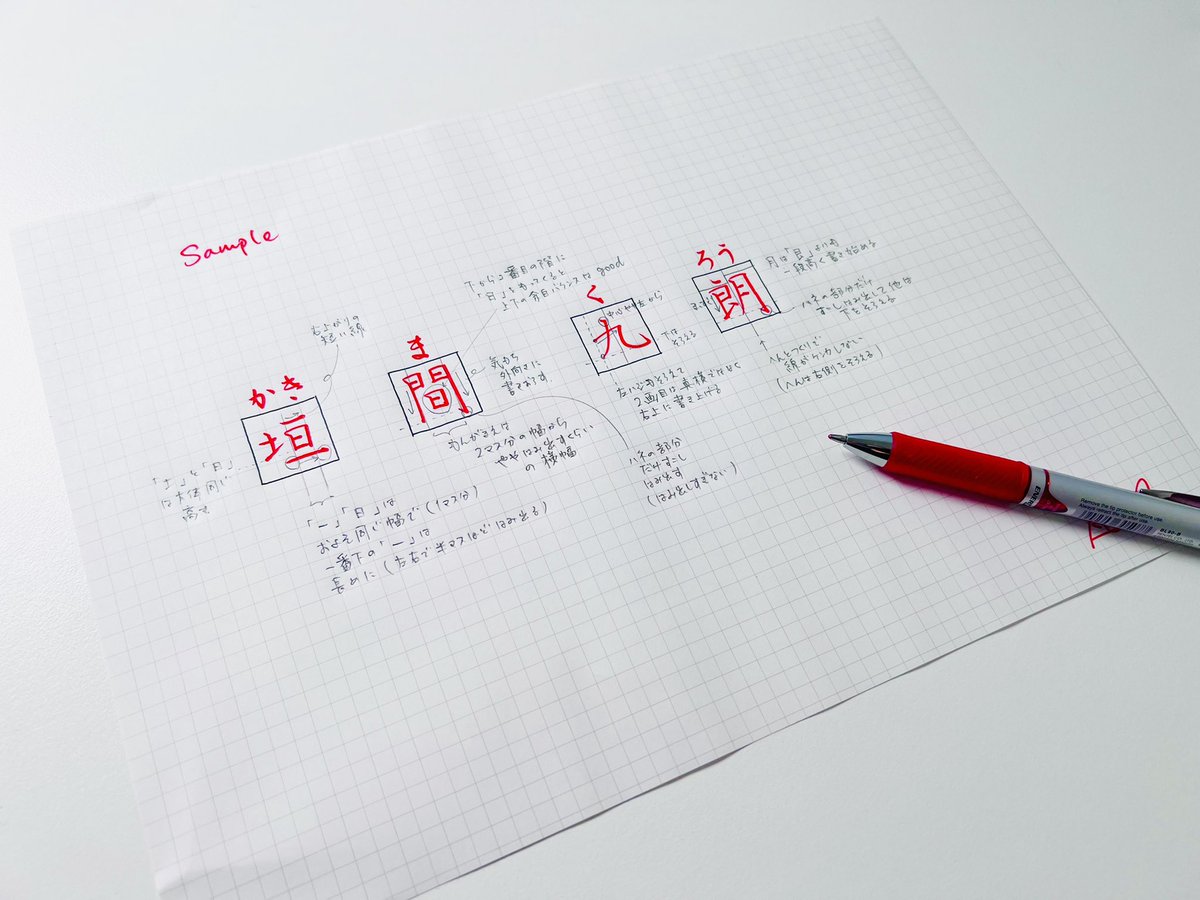 Sample
かき
垣
右上がりの
短い線
「土」と「日」
はだいたい同じ
高さ
「一」「日」は
およそ同じ幅で(1マス分)
一番下の「一」は
長めに(左右で半マスほどはみ出る)
ま
間
下から2番目の隅に
「日」をもってくると
上下の余白バランスが good
気もち
外向きに
書き出す
もんがまえは
2マス分の幅から
ややはみ出すくらい
の横幅
ハネの部分
だけすこし
はみ出す
(はみ出しすぎない)
く
九
中心やや左から
下は
そろえる
左ハジをそろえて
2画目は真横ではなく
右上に書き上げる
ろう
朗
月は「良」よりも
一段高く書き始める
ハネの部分だけ
すこしはみ出して他は
下をそろえる
へんとつくりで
線がケンカしない
(へんは右側でそろえる)
Remove the tip protector before use.
Always retract the tip after use.